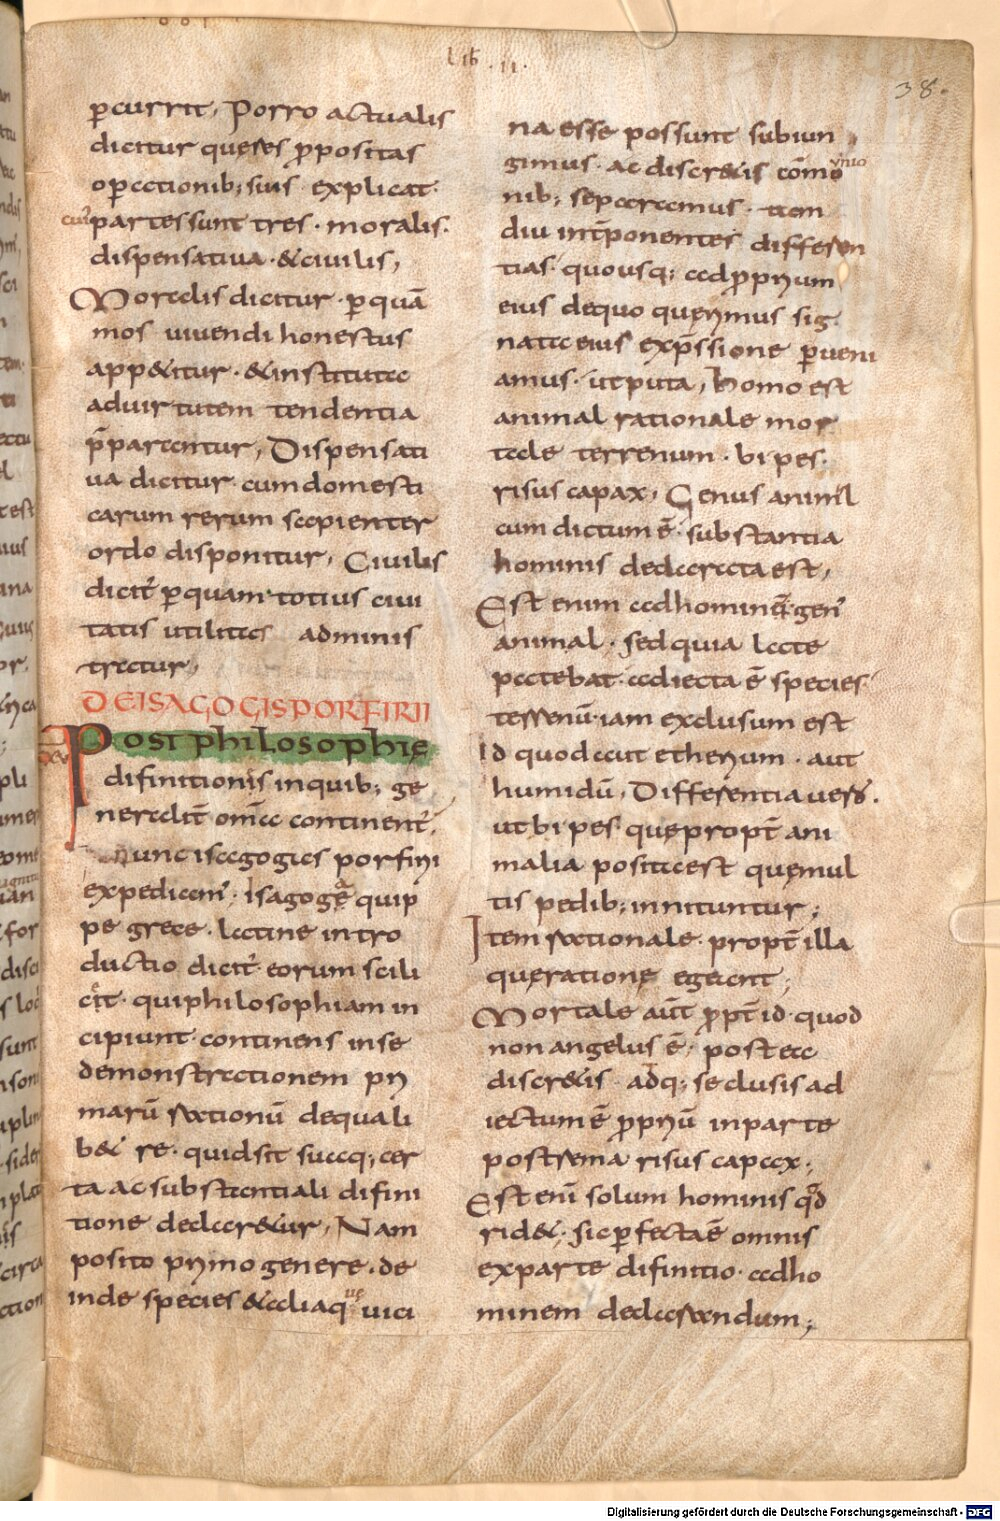 Lib . II .
38.
ꝑcurrit, Porro actualis
dicitur queres ꝓpositas
oꝑationib; suis explicat.
cui' partes sunt tres . moralis.
dispensatiua . & ciuilis,
Moralis dicitur . ꝑ quā
mos uiuendi honestus
app&itur . & instituta
ad uirtutem tendentia
p̄parantur, Dispensati
ua dicitur cum domesti
carum rerum sapienter
ordo disponitur, Ciuilis
dicit̄ ꝑ quam totius ciui
tatis utilitas adminis
tratur,
DE ISAGOGIS PORFIRII
Post philosophię
difinitionis in quib; ge
neralit̄ om̄a continent̄,
nunc isagogas porfirii
expediam'; Isagoge quip
pe grece . latine intro
ductio dicit̄ eorum scili
c&̄ qui philosophiam in
cipiunt continens in se
demonstrationem pri
marū rationū de quali
b& re . quid sit suaq; cer
ta ac substantiali difini
tione declar&ur, Nam
posito primo genere . de
inde species & aliaq' ue uici
na esse possunt subiun
gimus . ac discr&is com̄o unio
nib; separamus . tam
diu int̄ponentes differen
tias quousq; ad ꝓprium
eius de quo querimus sig
nata eius exp̄ssione ꝑueni
amus . ut puta, homo est
animal rationale mor
tale terrenum . bipes .
risus capax, Genus animal
cum dictum ē substantia
hominis declarata est,
Est enim ad hominē gen'
animal . sed quia late
patebat adiecta ē species
terrenū iam exclusum est
id quod aut etherium . aut
humidū, Differentia uero .
ut bipes que propt̄ ani
malia posita est que mul
tis pedib; innituntur;
Item rationale propt̄ illa
que ratione egeant;
Mortale aūt ꝓpt̄ id quod
non angelus ē . postea
discr&is adq; seclusis ad
iectum ē ꝓpriū in parte
postrema risus capax;
Est enī solum hominis qđ
rid&; sic ꝑfecta ē omnis
ex parte difinitio . ad ho
minem declarandum;
Digitalisierung gefördert durch die Deutsche Forschungsgemeinschaft - DFG